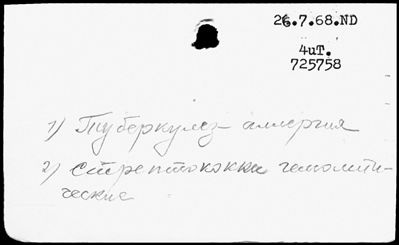 26.7.68.ND
4uT.
725758
1) Туберкулез – аллергия
2) стрептококки гемолити-
ческие